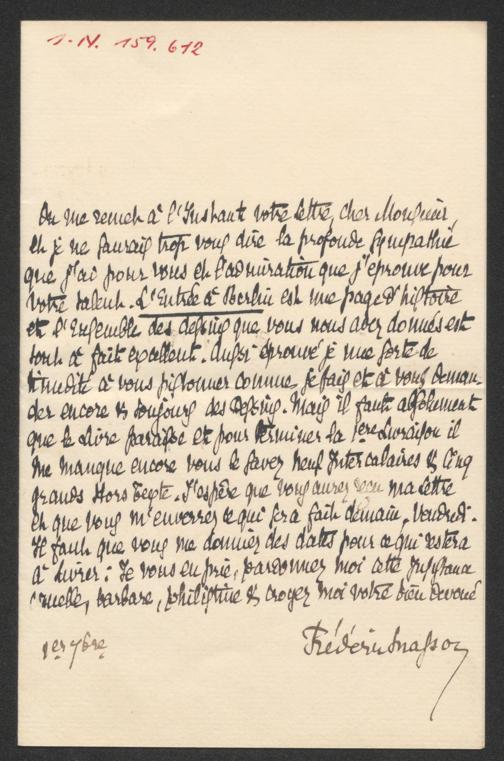 I.N. 159.612
On me remet à l'Instant votre lettre, cher Monsieur,
et je ne saurais trop vous dire la profonde sympathie
que j'ai pour vous et l'admiration que j'éprouve pour
votre talent. L'Entrée à Berlin est une page d'histoire
et l'Ensemble des dessins que vous nous avez donnés est
tout à fait excellent. Aussi éprouvé je une sorte de
timidité à vous pistonner comme je fais et à vous deman-
der encore & toujours des Dessins. Mais il faut absolument
que le Livre paraisse et pour terminer la 1ere Livraison il
me manque encore vous le savez neuf Intercalaires & Cinq
grands Hors Texte. J'espère que vous aurez reçu ma lettre
et que vous m'enverrez ce qui sera fait demain, Vendredi.
Il faut que vous me donniez des dates pour ce qui restera
à livrer: Je vous en prie, pardonnez moi cette Insistance
cruelle, barbare, philistine & croyez moi votre bien dévoué
1er 7bre
Frédéric Masson